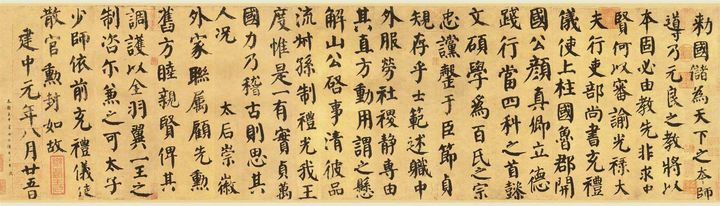 勑國儲為天下之本師
導乃元良之教將以
本固必由教先非求忠
賢何以審諭光祿大
夫行吏部尚書充禮
儀使上柱國魯郡開
國公顏真卿立德
踐行當四科之首懿
文碩學為百氏之宗
忠讜罄于臣節貞
規存乎士範述職中
外服勞社稷靜專由
其直方動用謂之懸
解山公啓事清彼品
流叔孫制禮光我王
度惟是一有實貞萬
國力乃稽古則思其
人況 太后崇徽
外家聯屬顧先勳
舊方睦親賢俾其
調護以全羽翼一王之
制咨爾兼之可太子
少師依前充禮儀使
散官勳封如故
建中元年八月廿五日